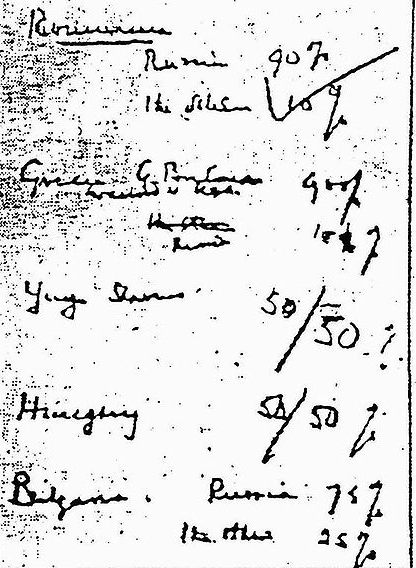 Roumania
Russia 90%
The others 10%
Greece G. Britain 90%
in accord with USA
The others
Russia 10%
Yugo Slavia 50/50 %
Hungary 50/50 %
Bulgaria. Russia 75%
The others 25%